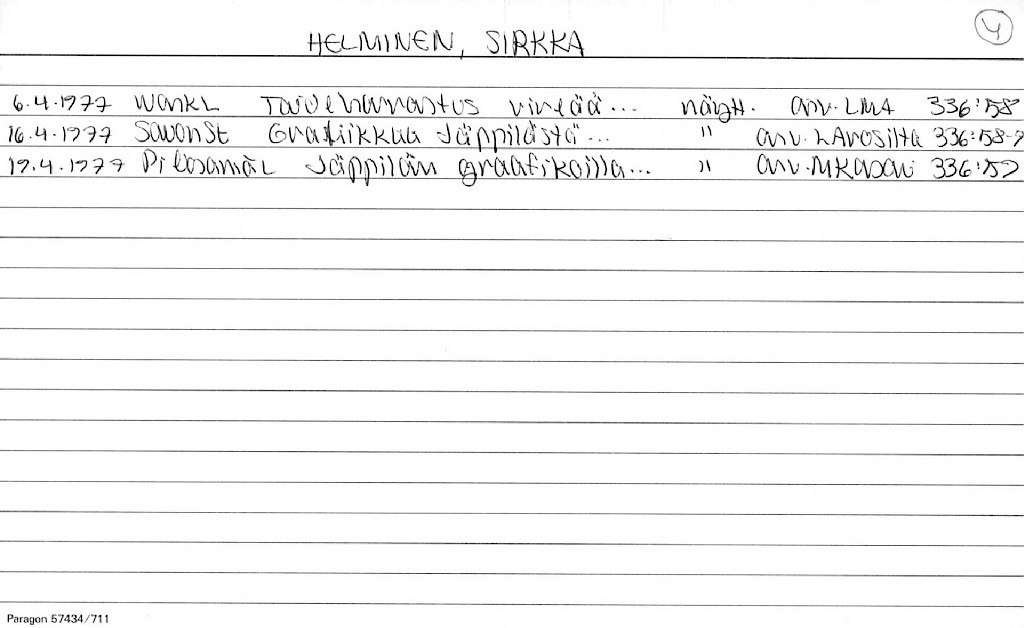 4
HELMINEN, SIRKKA
6.4.1977 WarkL Taideharrastus vireää... näytt. arv. LMA 336:158
16.4.1977 SavonSt Grafiikkaa Jäppilästä... " arv. 336:158-9
19.4.1977 Jäppilän graafikoilla... " arv. 336:159
Paragon 57434/711